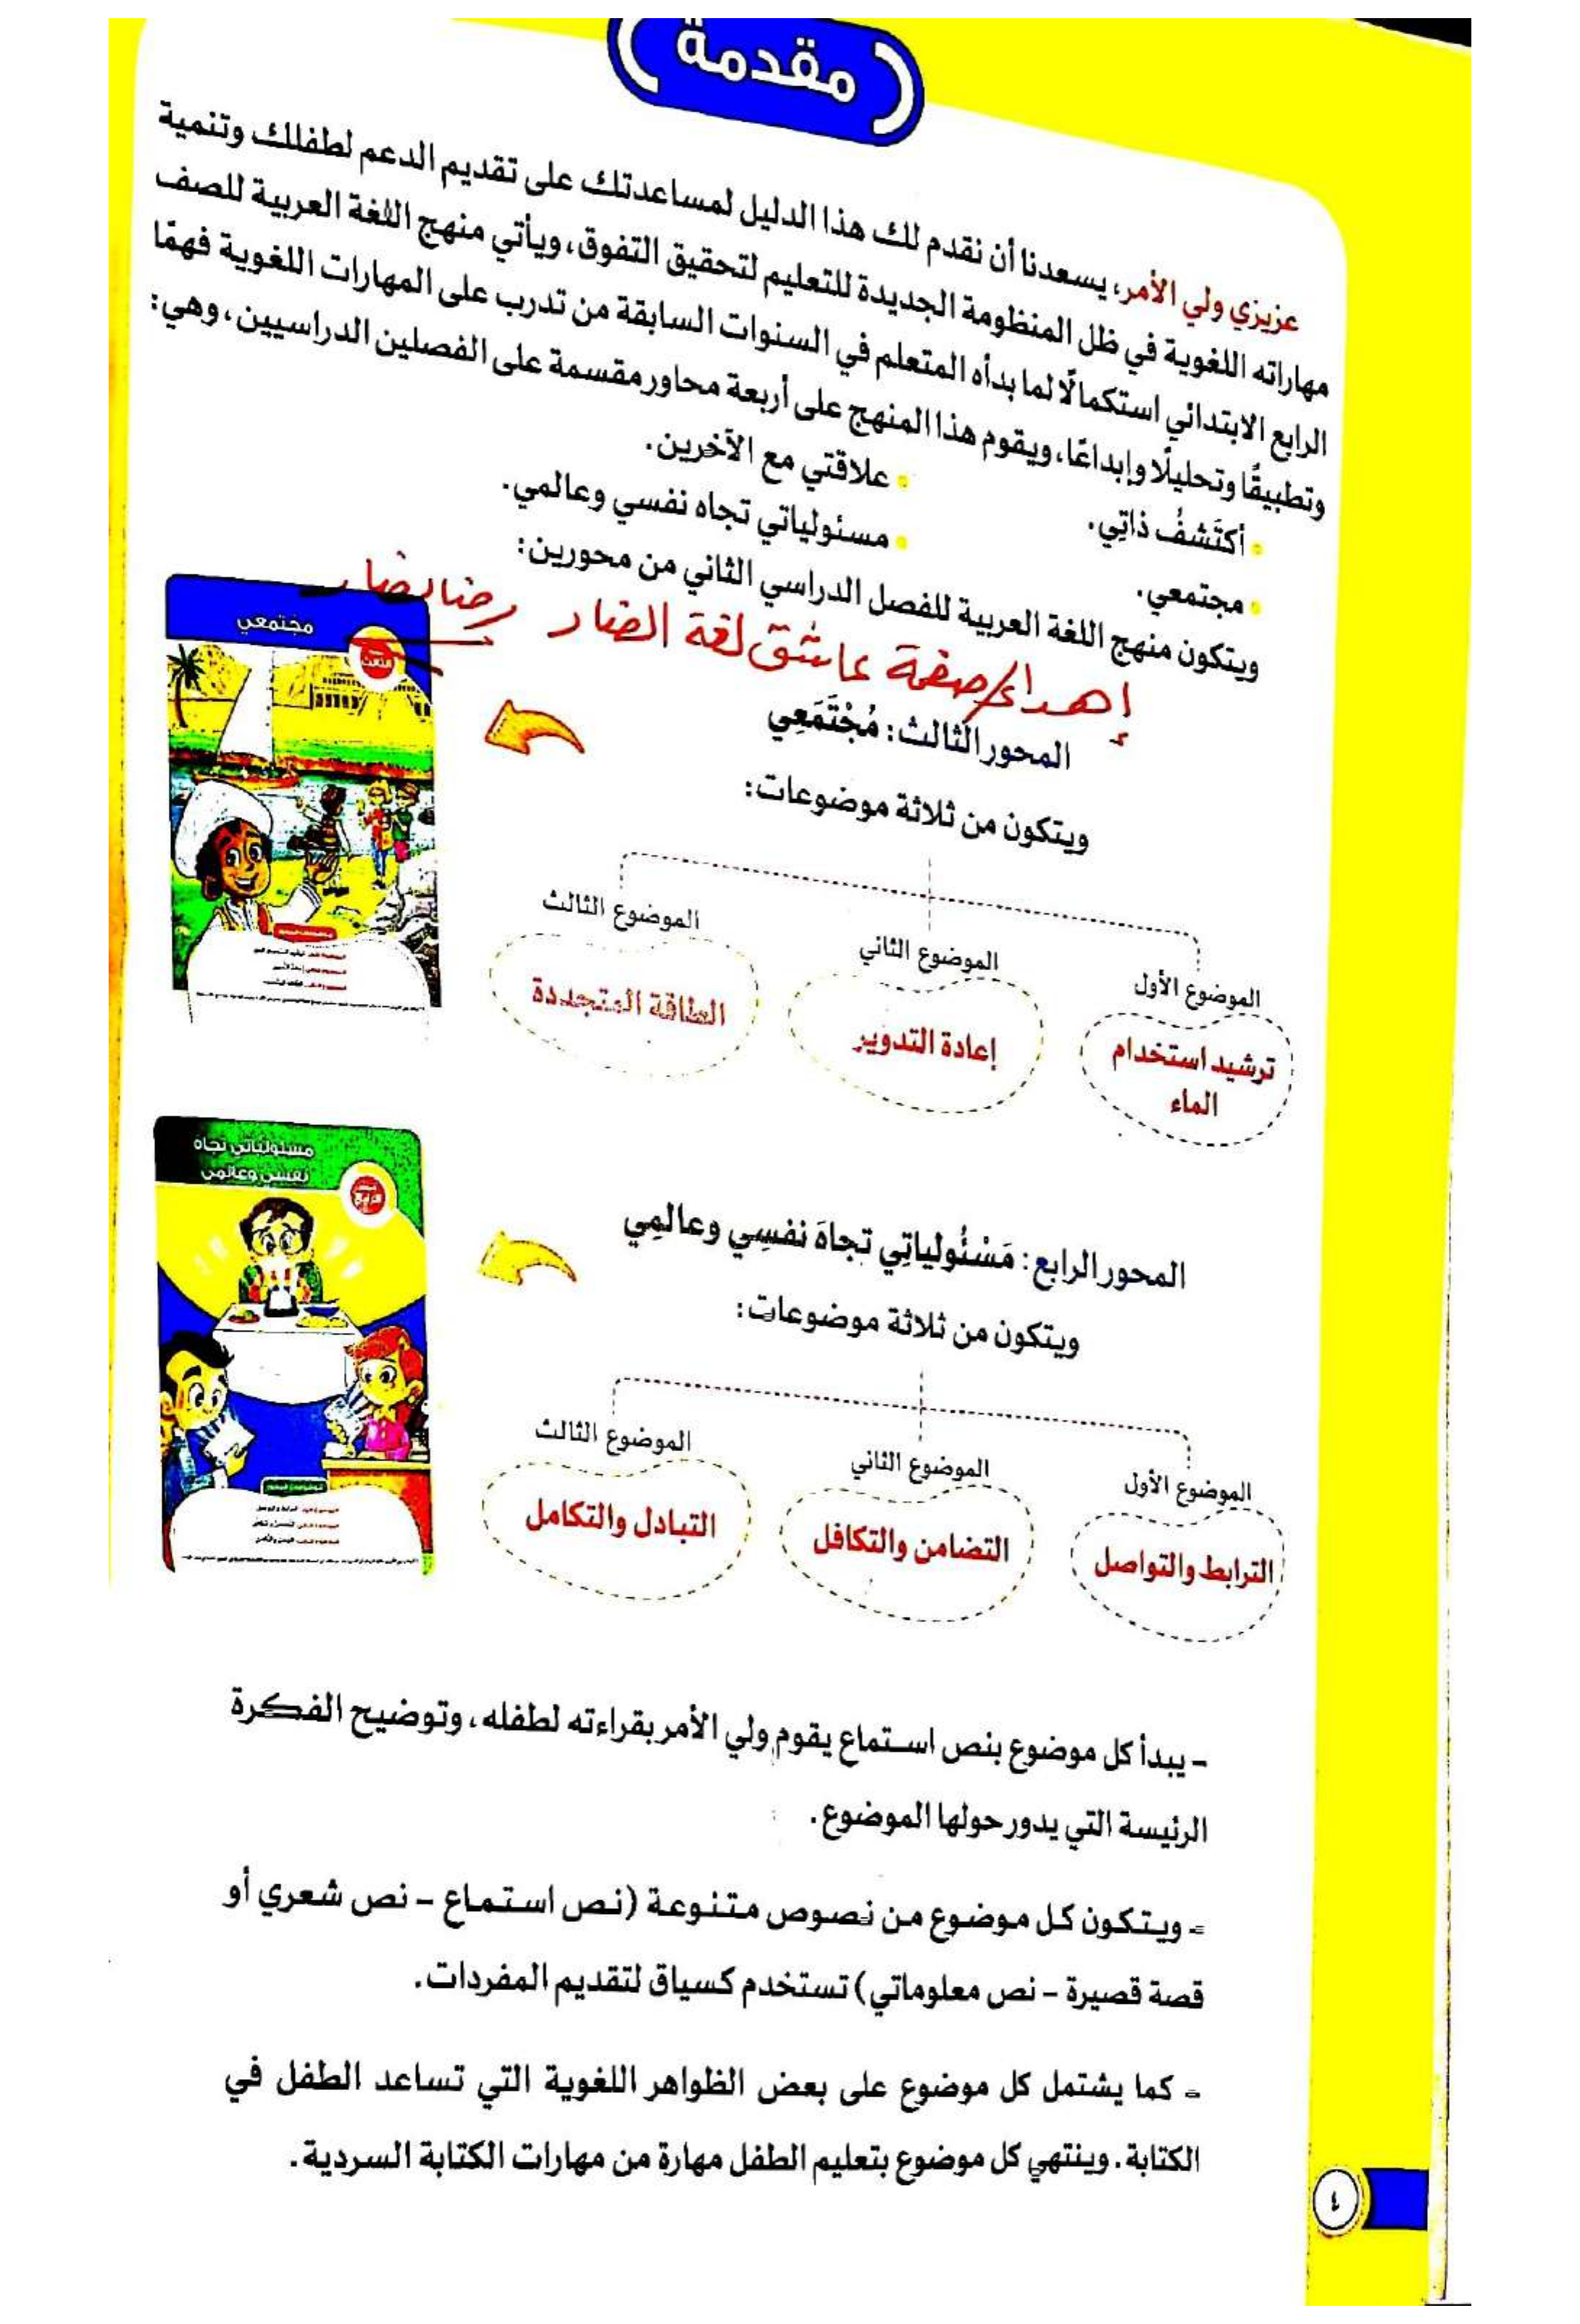 مقدمة
عزيزي ولي الأمر، يسعدنا أن نقدم لك هذا الدليل لمساعدتك على تقديم الدعم لطفلك وتنمية
مهاراته اللغوية في ظل المنظومة الجديدة للتعليم لتحقيق التفوق، ويأتي منهج اللغة العربية للصف
الرابع الابتدائي استكمالًا لما بدأه المتعلم في السنوات السابقة من تدرب على المهارات اللغوية فهمًا
وتطبيقًا وتحليلًا وإبداعًا، ويقوم هذا المنهج على أربعة محاور مقسمة على الفصلين الدراسيين، وهي:
أكتَشفُ ذاتِي.
علاقتي مع الآخرين.
مجتمعي.
مسئولياتي تجاه نفسي وعالمي.
ويتكون منهج اللغة العربية للفصل الدراسي الثاني من محورين:
إهداء/صفحة عاشق لغة الضاد
مجتمعي
الثالث
المحور الثالث: مُجْتَمَعِي
ويتكون من ثلاثة موضوعات:
الموضوع الأول
ترشيد استخدام
الماء
الموضوع الثاني
إعادة التدوير
الموضوع الثالث
الطاقة المتجددة
مسئولياتي تجاه
نفسي وعالمي
الرابع
المحور الرابع: مَسْئُولياتِي تجاهَ نفسِي وعالمِي
ويتكون من ثلاثة موضوعات:
الموضوع الأول
الترابط والتواصل
الموضوع الثاني
التضامن والتكافل
الموضوع الثالث
التبادل والتكامل
- يبدأ كل موضوع بنص استماع يقوم ولي الأمر بقراءته لطفله، وتوضيح الفكرة
الرئيسة التي يدور حولها الموضوع.
- ويتكون كل موضوع من نصوص متنوعة (نص استماع - نص شعري أو
قصة قصيرة - نص معلوماتي) تستخدم كسياق لتقديم المفردات.
- كما يشتمل كل موضوع على بعض الظواهر اللغوية التي تساعد الطفل في
الكتابة. وينتهي كل موضوع بتعليم الطفل مهارة من مهارات الكتابة السردية.
٤